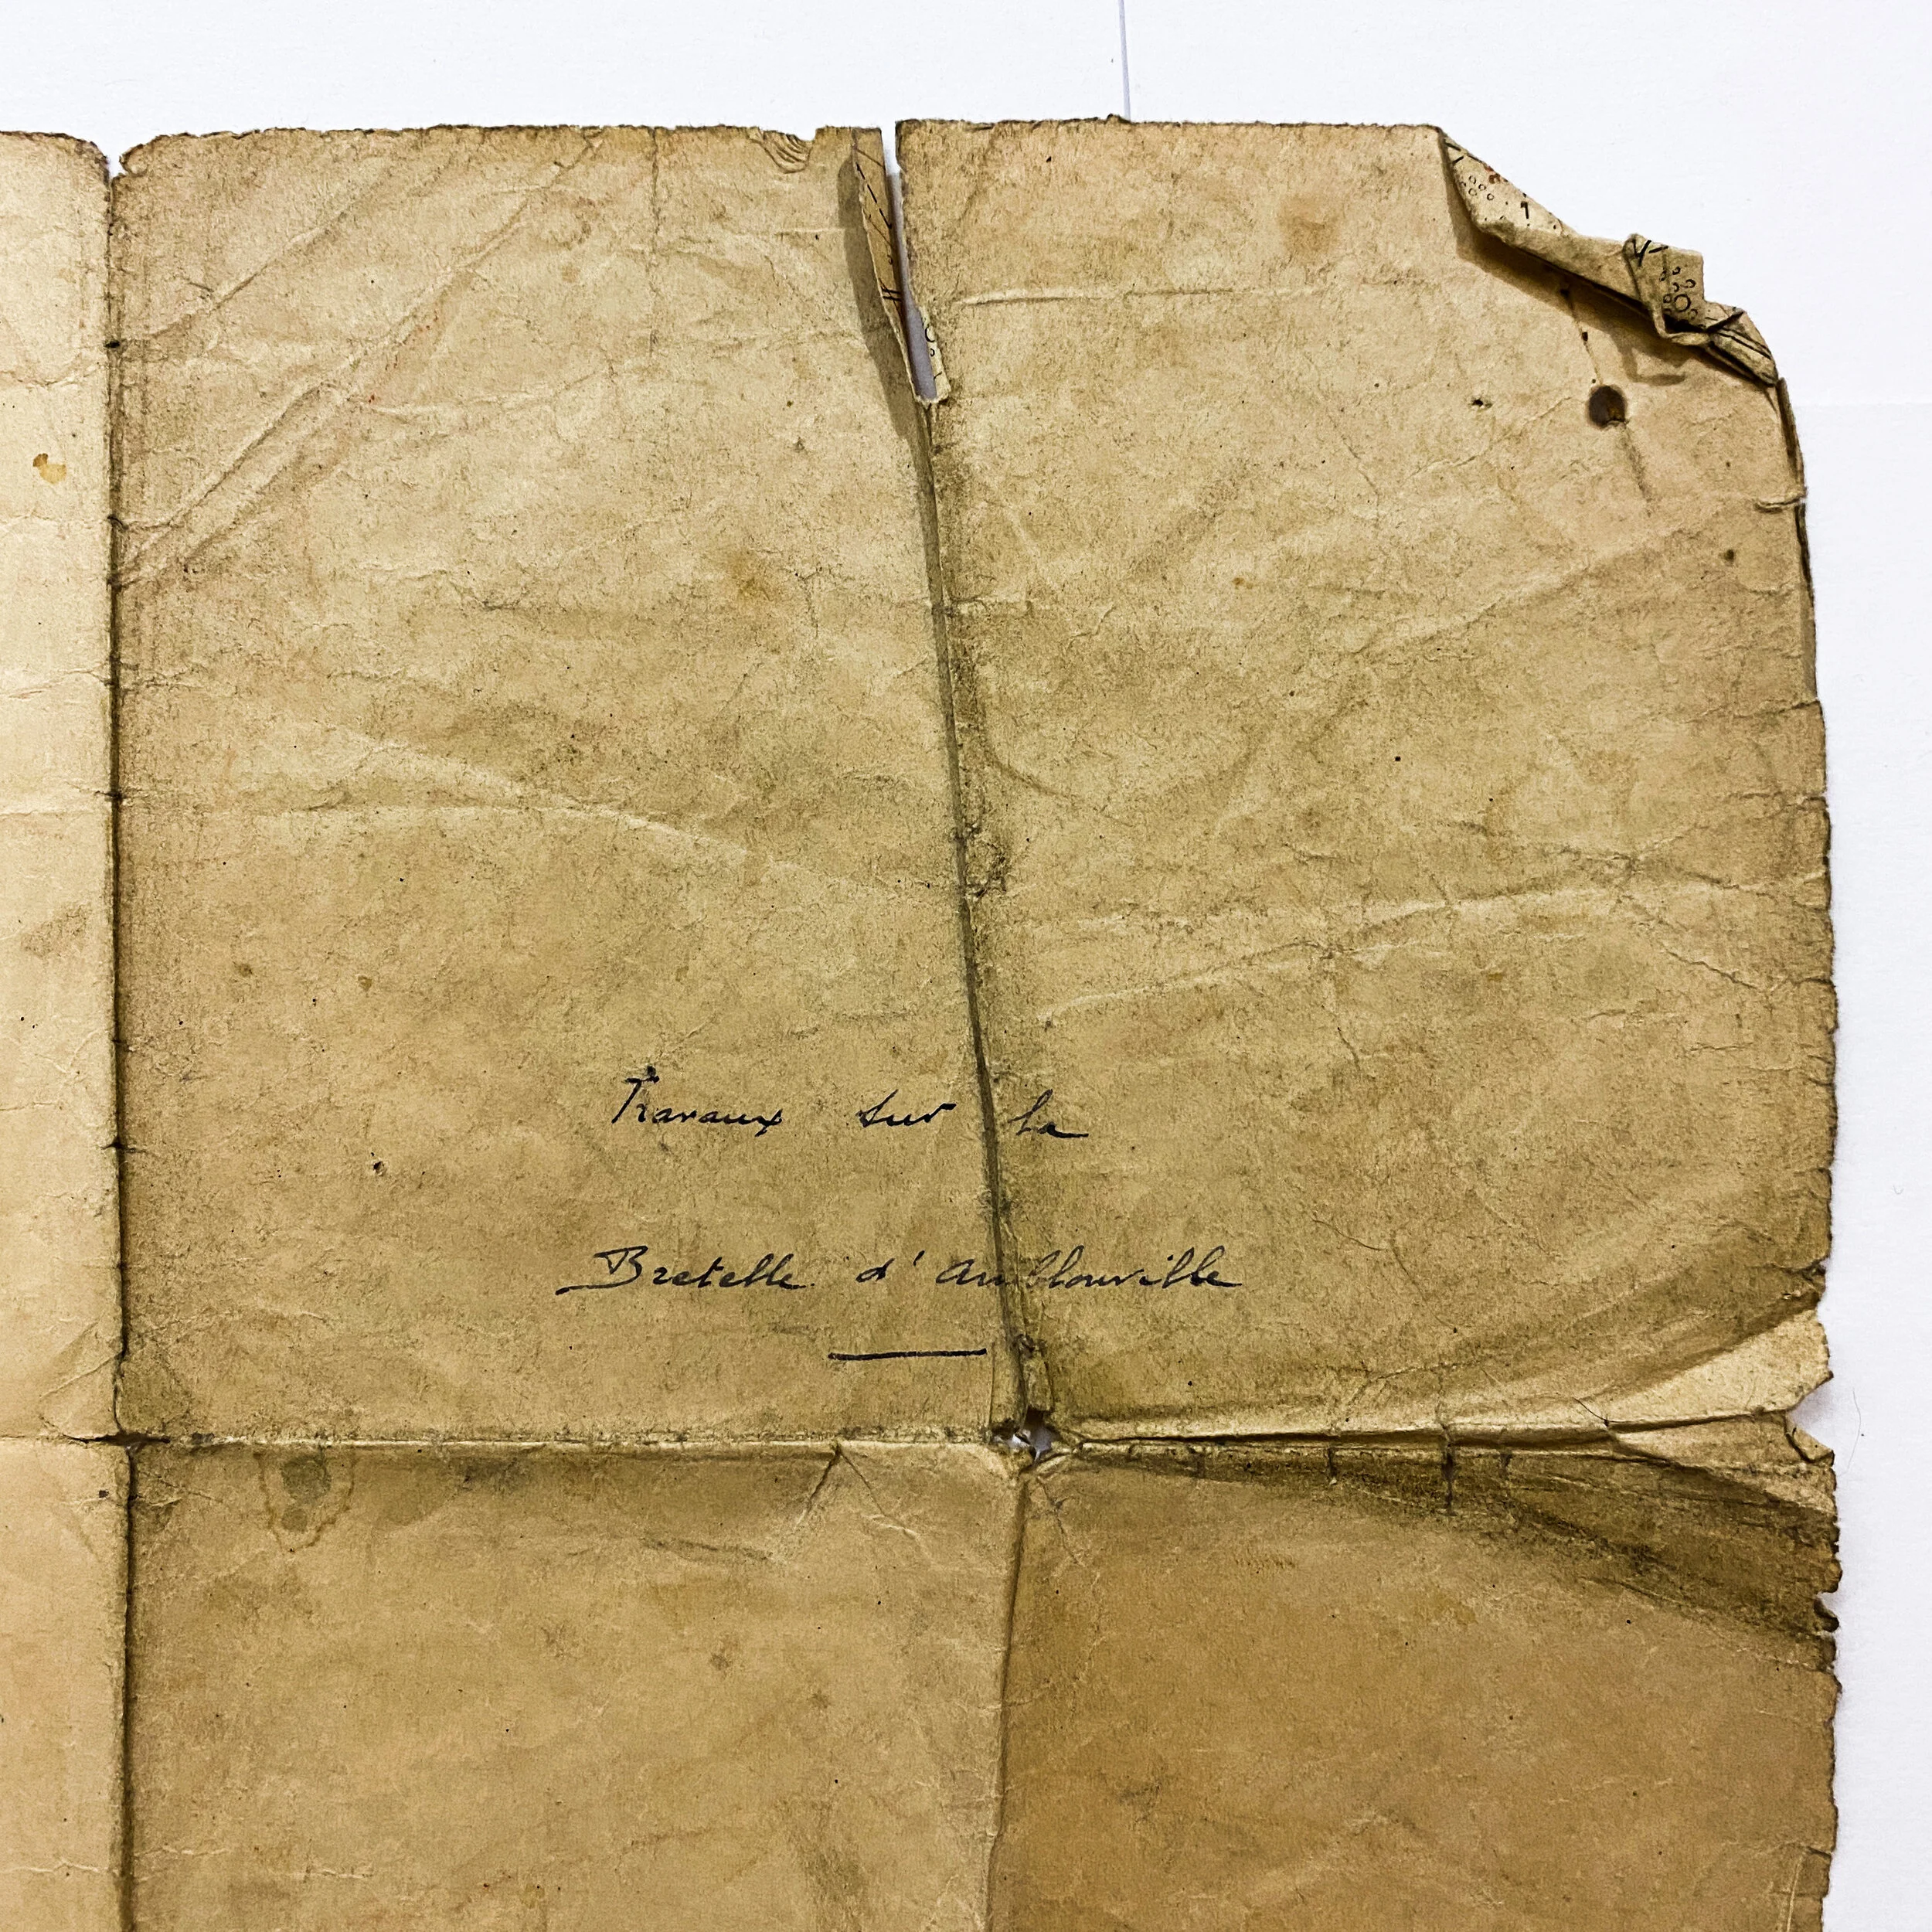 Travaux sur la
Bretelle d'Amblouville